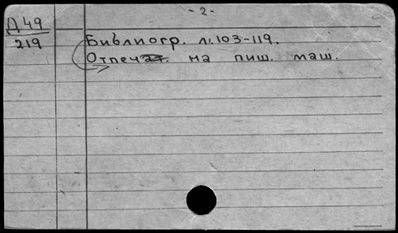 - 2 -
Д 49
219
Библиогр. л. 103-119.
Отпечат. на пиш. маш.